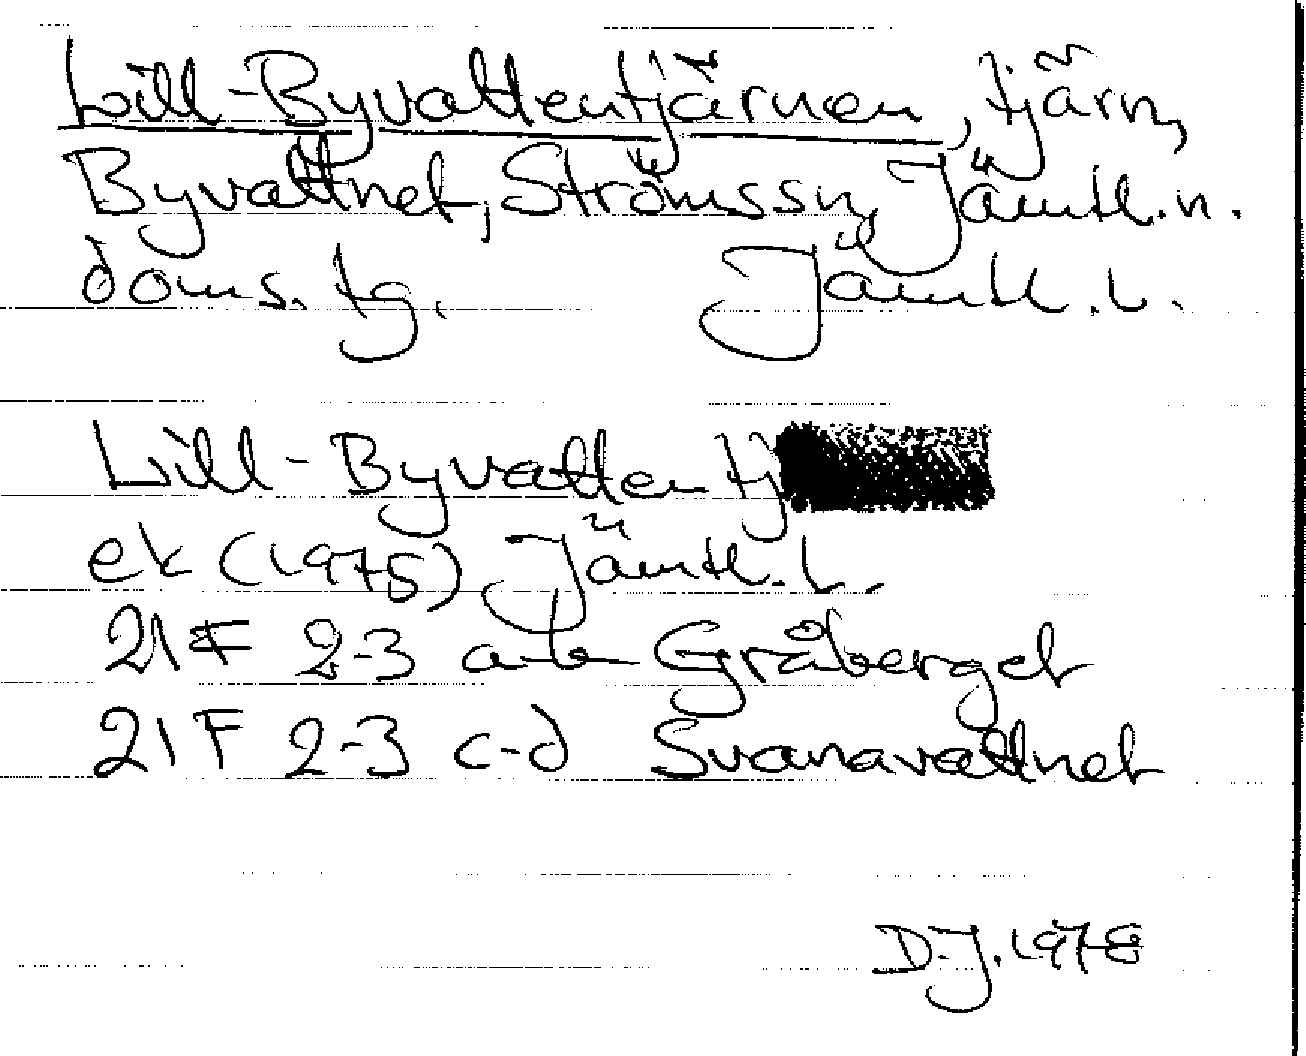 Lill-Byvattentjärnen, tjärn,
Byvattnet, Strömssn, Jämtl.n.
doms. tg. Jämtl.L.
Lill-Byvattentj
ek (1975) Jämtl.L.
21F 2-3 a-b Gråberget
21F 2-3 c-d Svanavattnet
D.J. 1978